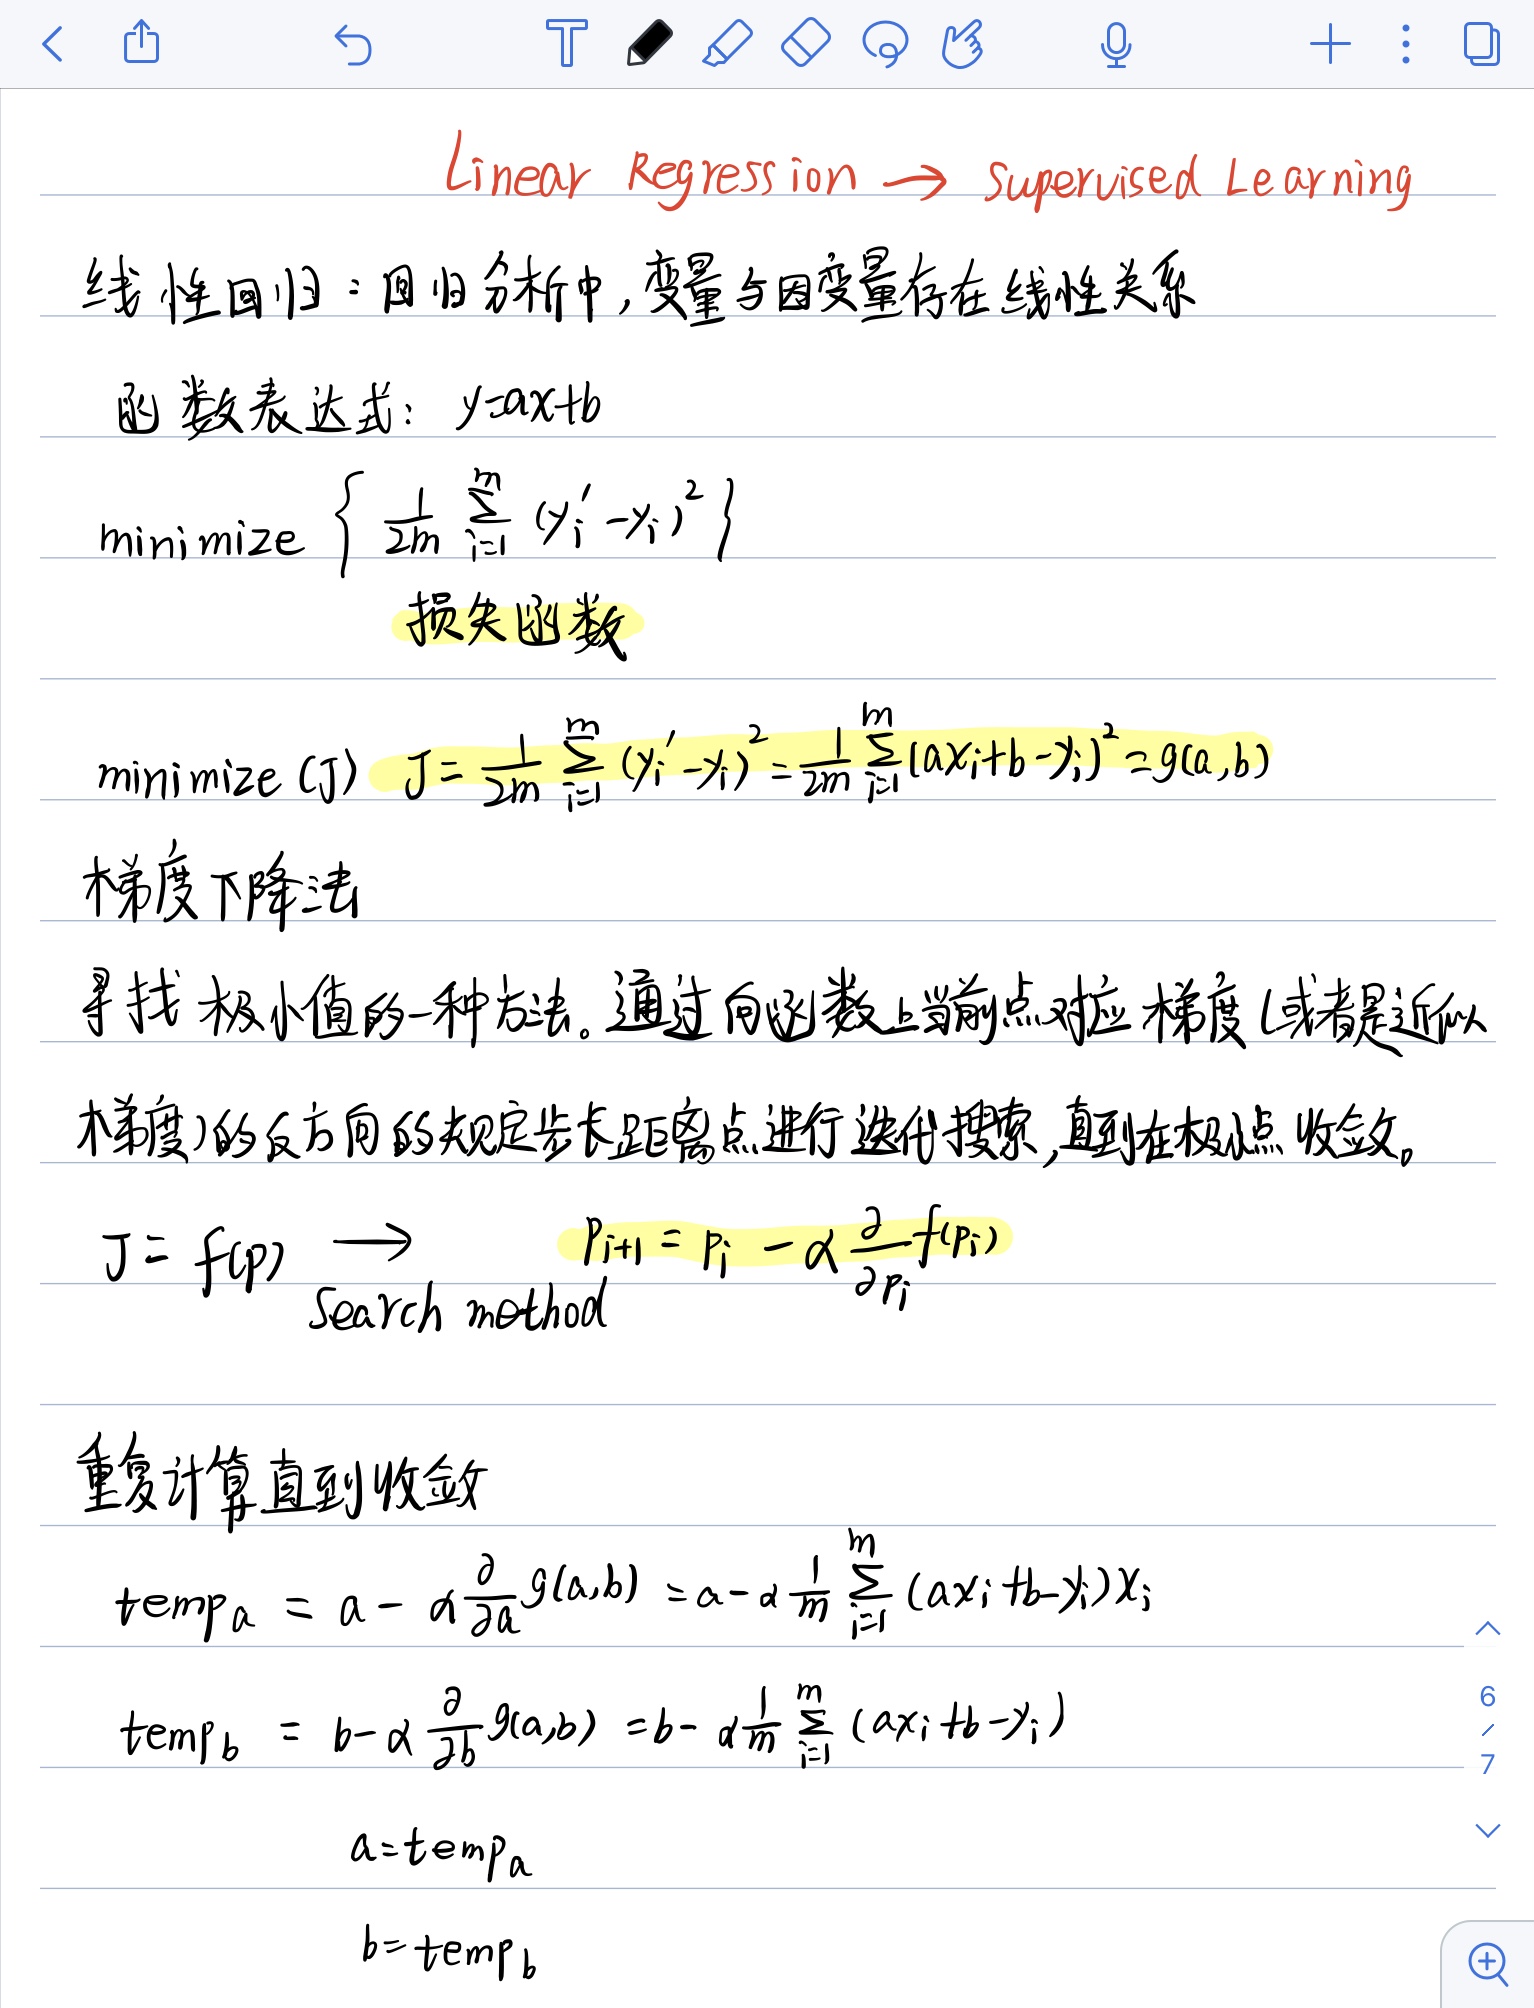 Linear Regression → Supervised Learning
线性回归：回归分析中,变量与因变量存在线性关系
函数表达式： y=ax+b
minimize { 1/2m ∑_{i=1}^{m} (y_i' - y_i)² }
损失函数
minimize (J) J = 1/2m ∑_{i=1}^{m} (y_i' - y_i)² = 1/2m ∑_{i=1}^{m} (ax_i + b - y_i)² = g(a,b)
梯度下降法
寻找极小值的一种方法。通过向函数上当前点对应梯度(或者是近似
梯度)的反方向的规定步长距离点进行迭代搜索,直到在极小点收敛。
J = f(p) → p_{i+1} = p_i - α ∂/∂p_i f(p_i)
Search method
重复计算直到收敛
temp_a = a - α ∂/∂a g(a,b) = a - α 1/m ∑_{i=1}^{m} (ax_i + b - y_i) x_i
temp_b = b - α ∂/∂b g(a,b) = b - α 1/m ∑_{i=1}^{m} (ax_i + b - y_i)
a = temp_a
b = temp_b
6
/
7